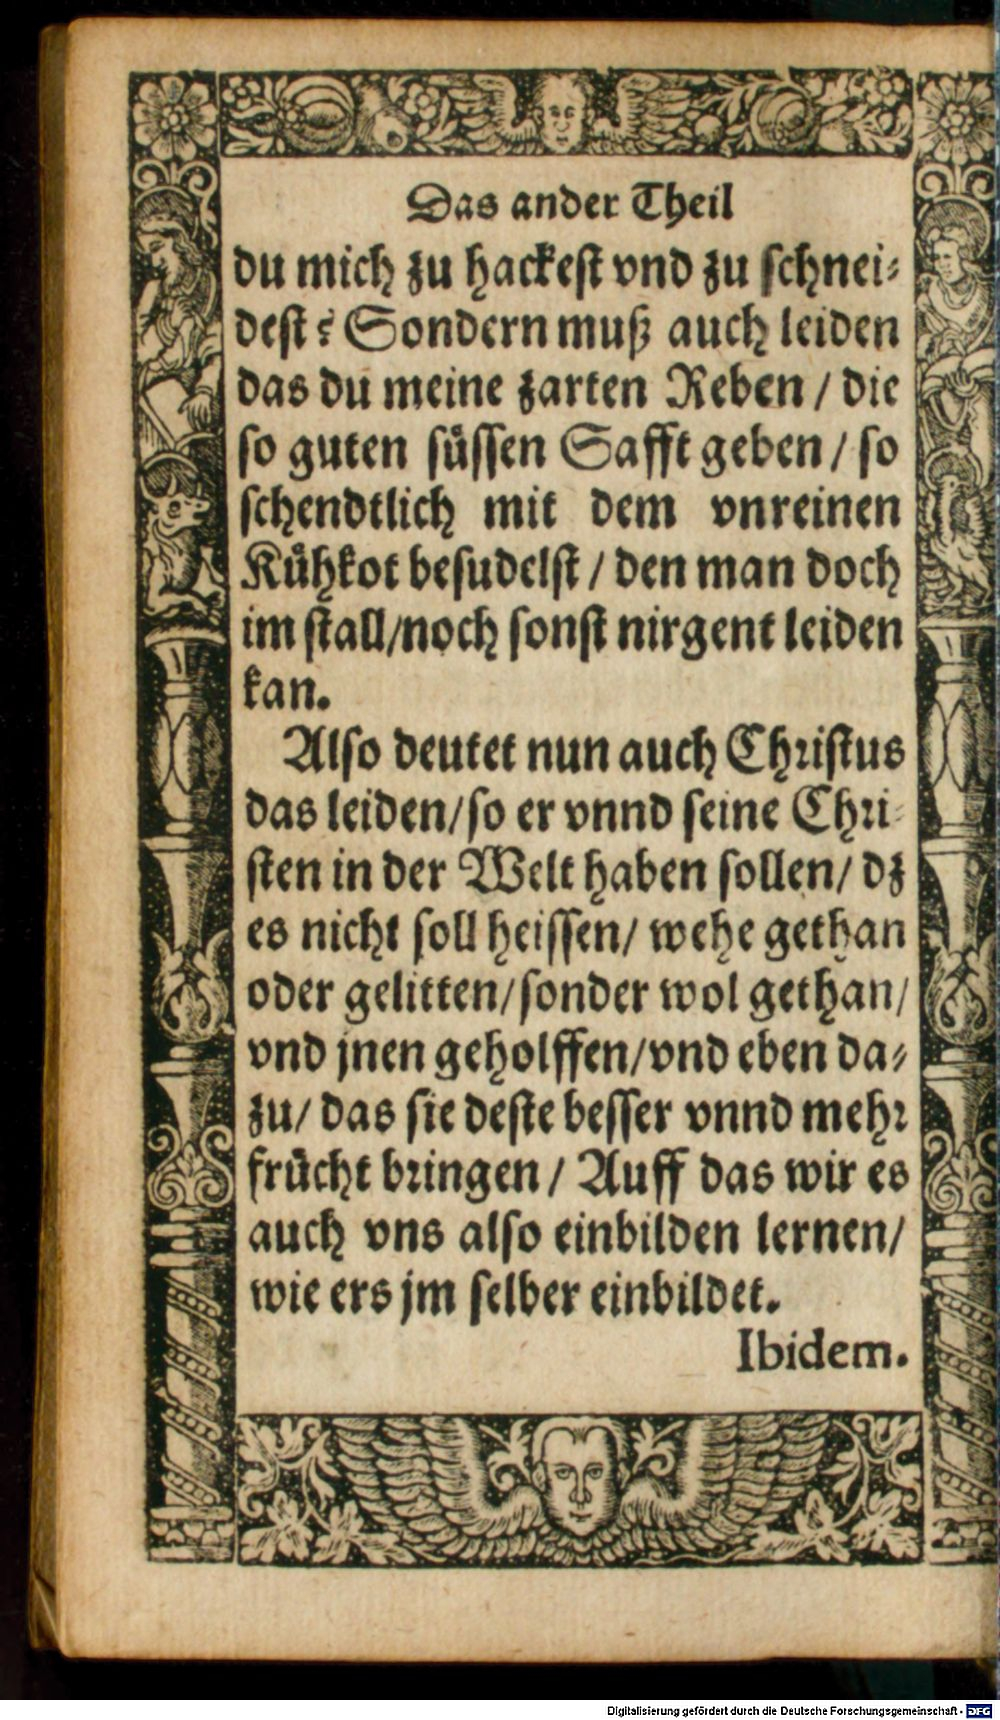 Das ander Theil
du mich zu hackest vnd zu schnei⸗
dest? Sondern muß auch leiden
das du meine zarten Reben / die
so guten süssen Safft geben / so
schendtlich mit dem vnreinen
Kühkot besudelst / den man doch
im stall/noch sonst nirgent leiden
kan.
Also deutet nun auch Christus
das leiden/so er vnnd seine Chri⸗
sten in der Welt haben sollen/ dz
es nicht soll heissen/ wehe gethan
oder gelitten/sonder wol gethan/
vnd jnen geholffen/vnd eben da⸗
zu/ das sie deste besser vnnd mehr
frücht bringen / Auff das wir es
auch vns also einbilden lernen/
wie ers jm selber einbildet.
Ibidem.
Digitalisierung gefördert durch die Deutsche Forschungsgemeinschaft - DFG